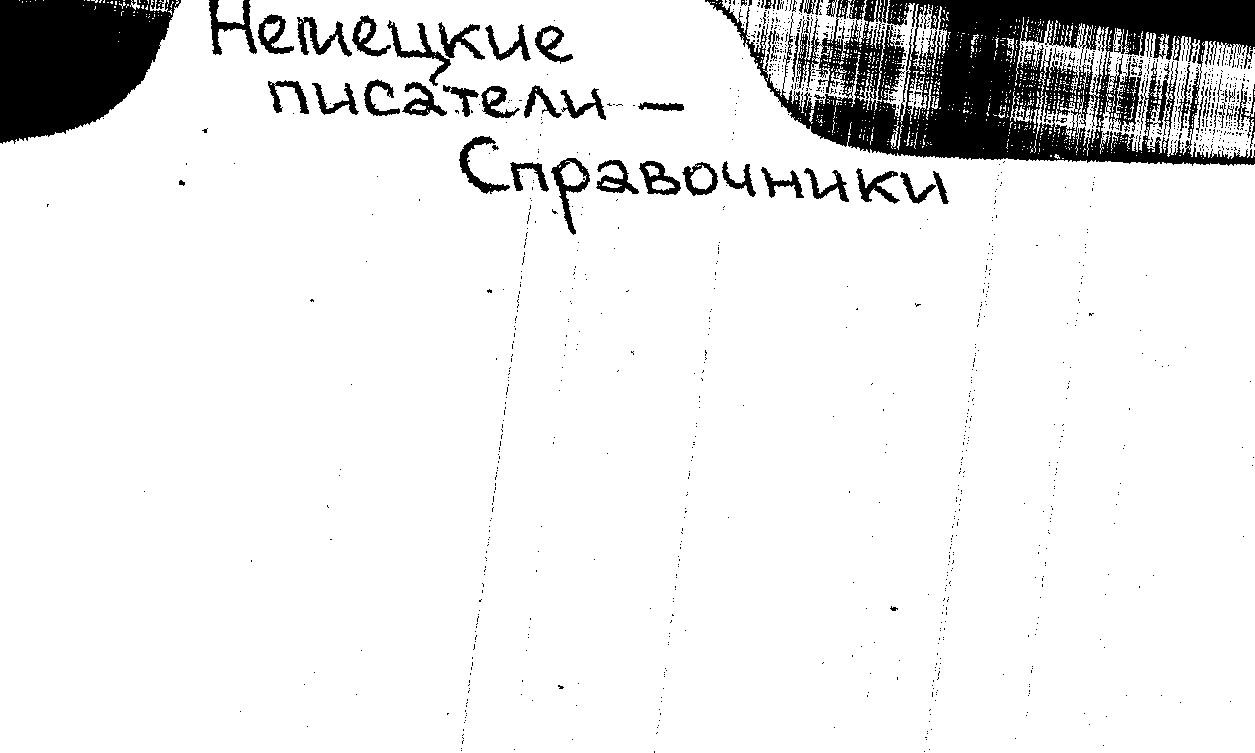 Немецкие
писатели —
Справочники